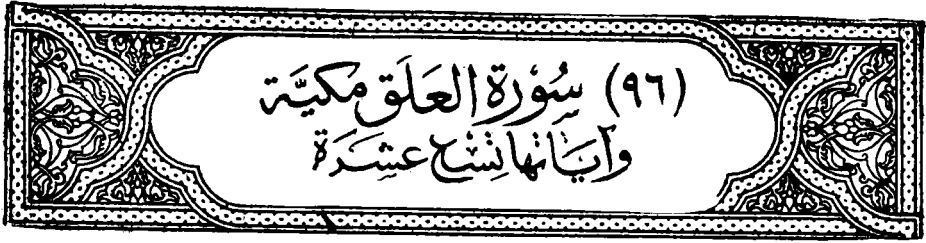 (٩٦) سُورَة العَلَق مَكيَّة
وآيَاتها تِسْع عَشرَة